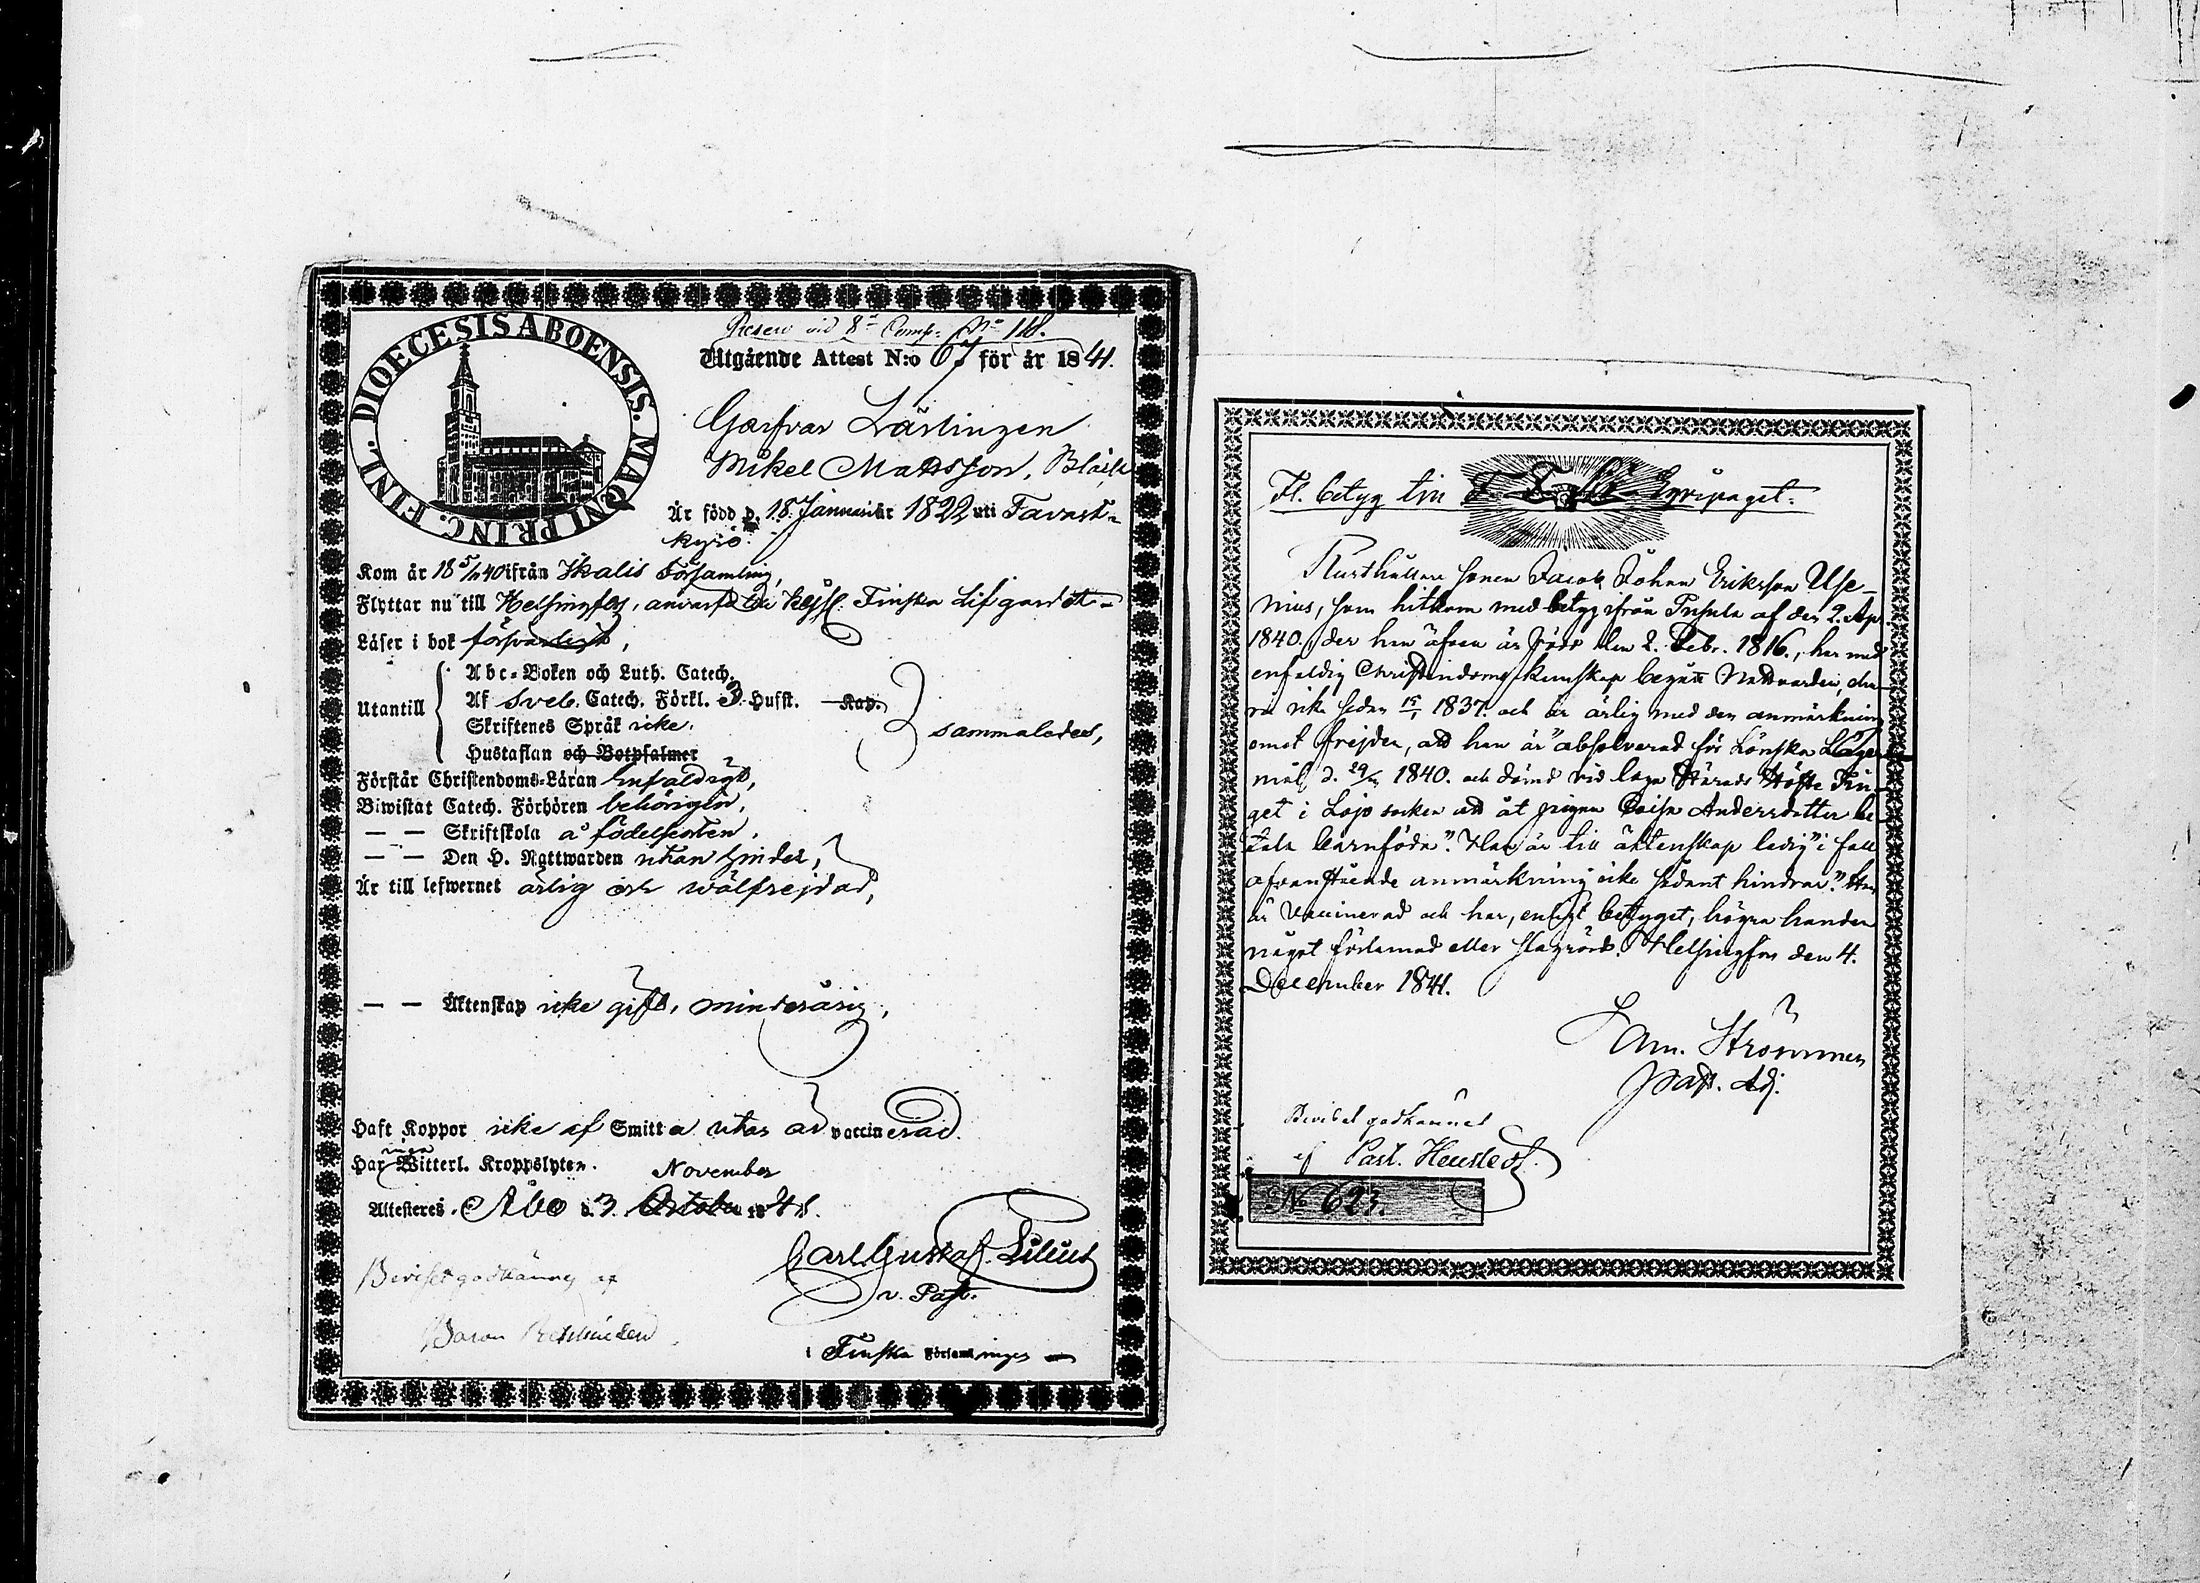 DIOECESIS ABOENSIS. MAGNI PRINC. FINL.
vid 8de Comp: No 118.
Utgående Attest N:o 67 för år 1841.
Garfvar Lärlingen
Mikel Mattsson,
Är född d. 18 Januarii år 1822 uti Tavast-
kyrö.
Kom år 18 5/11 40 ifrån Ikalis Församling,
Flyttar nu till Helsingfors, Kejsl. Finska Lifgardet
Läser i bok försvarligt,
Utantill
Abc-Boken och Luth. Catech.
Af Sveb. Catech. Förkl. 3 Hufst. Kap.
Skriftenes Språk icke.
Hustaflan och Botpsalmer
sammaledes,
Förstår Christendoms-Läran enfaldigt,
Biwistat Catech. Förhören behörigen,
— — Skriftskola å födelseorten.
— — Den H. Nattwarden utan hinder,
Är till lefwernet ärlig och wälfrejdad,
— — Äktenskap icke gift, minderårig,
Haft Koppor icke af Smitta utan är vaccinerad.
Har Witterl. Kroppslyten.
November
Attesteres. Åbo d. 3 October 1841.
Carl Gustaf Lilius
v. Past.
i Finska Församlingen
Beviset godkännes af
Baron
Fl. betyg till
Rusthållare sonen Jacob Johan Eriksson Use-
nius, som hitkom med betyg ifrån Pusula af den 2. Apr.
1840, der han äfven är född den 2. Febr. 1816, har med
enfaldig Christendoms kunskap begått Nattvarden, dere
icke sedan 15/1 1837 och är ärlig med den anmärkning
emot frejden, att han är "absolverad för Lönska Läger-
mål d. 29/11 1840. och dömd vid laga Härads Höste Tin-
get i Lojo socken att åt pigan Andersdotter be-
tala barnföda". Han är till äktenskap ledig "i fall
ofvanstående anmärkning icke sådant hindrar." Han
är Vaccinerad och har, enligt betyget, högra handen
något förlamad eller slagrörd. Helsingfors den 4.
December 1841.
Sam. Strömmer
Past. Adj.
Beviset godkännes
af Past.
No 623.